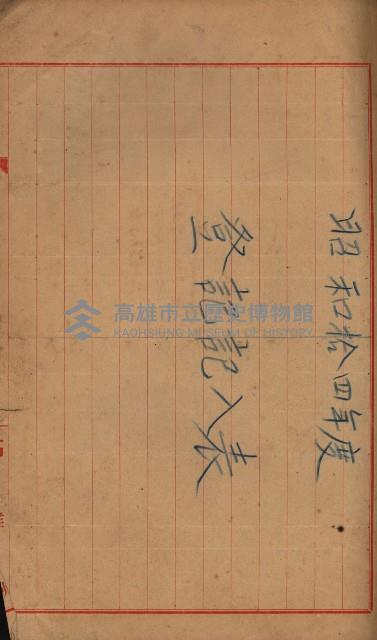 昭和拾四年度
登記記入表
高雄市立歷史博物館
KAOHSIUNG MUSEUM OF HISTORY